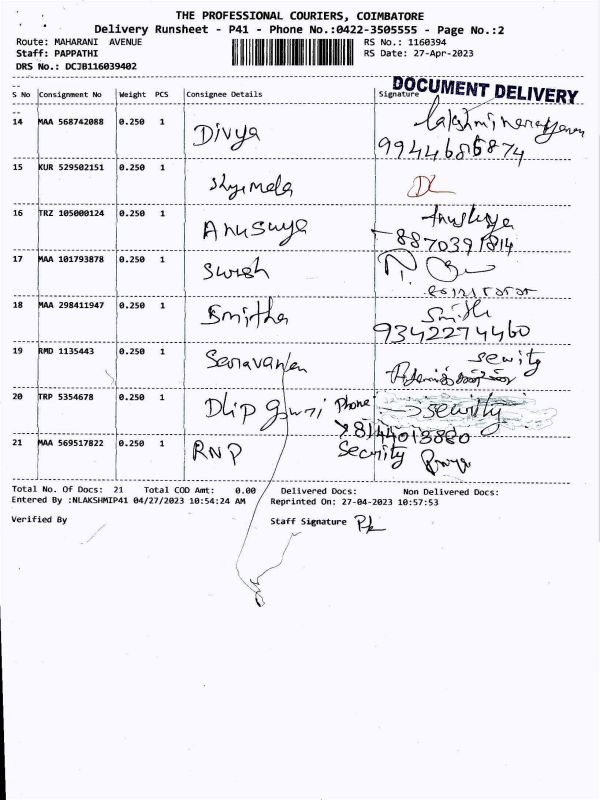 THE PROFESSIONAL COURIERS, COIMBATORE
Delivery Runsheet - P41 - Phone No.:0422-3505555 - Page No.:2
Route: MAHARANI AVENUE RS No.: 1160394
Staff: PAPPATHI RS Date: 27-Apr-2023
DRS No.: DCJB116039402
DOCUMENT DELIVERY
S No Consignment No Weight PCS Consignee Details Signature
14 MAA 568742088 0.250 1 Divya
15 KUR 529502151 0.250 1 Shyamala
16 TRZ 105000124 0.250 1 Anusuya
8870391814
17 MAA 101793878 0.250 1 Suresh
18 MAA 298411947 0.250 1 Smitha
9342274460
19 RMD 1135443 0.250 1
20 TRP 5354678 0.250 1 Phone security
8144013880
21 MAA 569517822 0.250 1 RNP Security
Total No. Of Docs: 21 Total COD Amt: 0.00 Delivered Docs: Non Delivered Docs:
Entered By :NLAKSHMIP41 04/27/2023 10:54:24 AM Reprinted On: 27-04-2023 10:57:53
Verified By Staff Signature